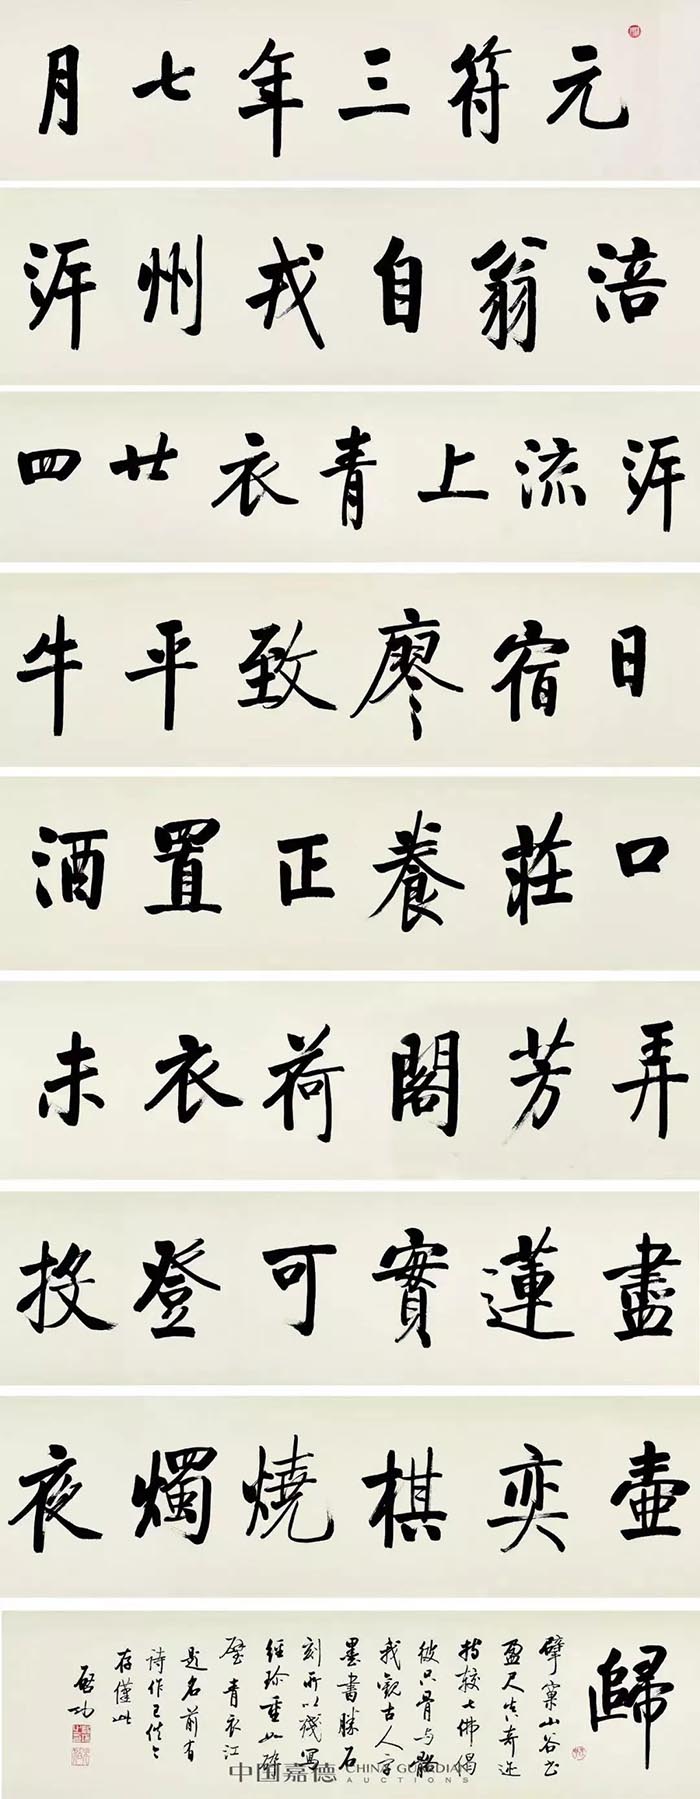 元符三年七月
涪翁自戎州泝
泝流上青衣廿四
日宿廖致平牛
口莊養正置酒
弄芳閣荷衣未
盡蓮實可登投
壺弈棋燒燭夜
歸
擘窠山谷書
盈尺真奇迹
持較七佛偈
彼只骨与骼
我觀古人字
墨書勝石
刻所以殘寫
經珍重如
璧 青衣江
題名前有
詩作已佚
存僅此
啟功
中国嘉德 CHINA GUARDIAN
AUCTIONS